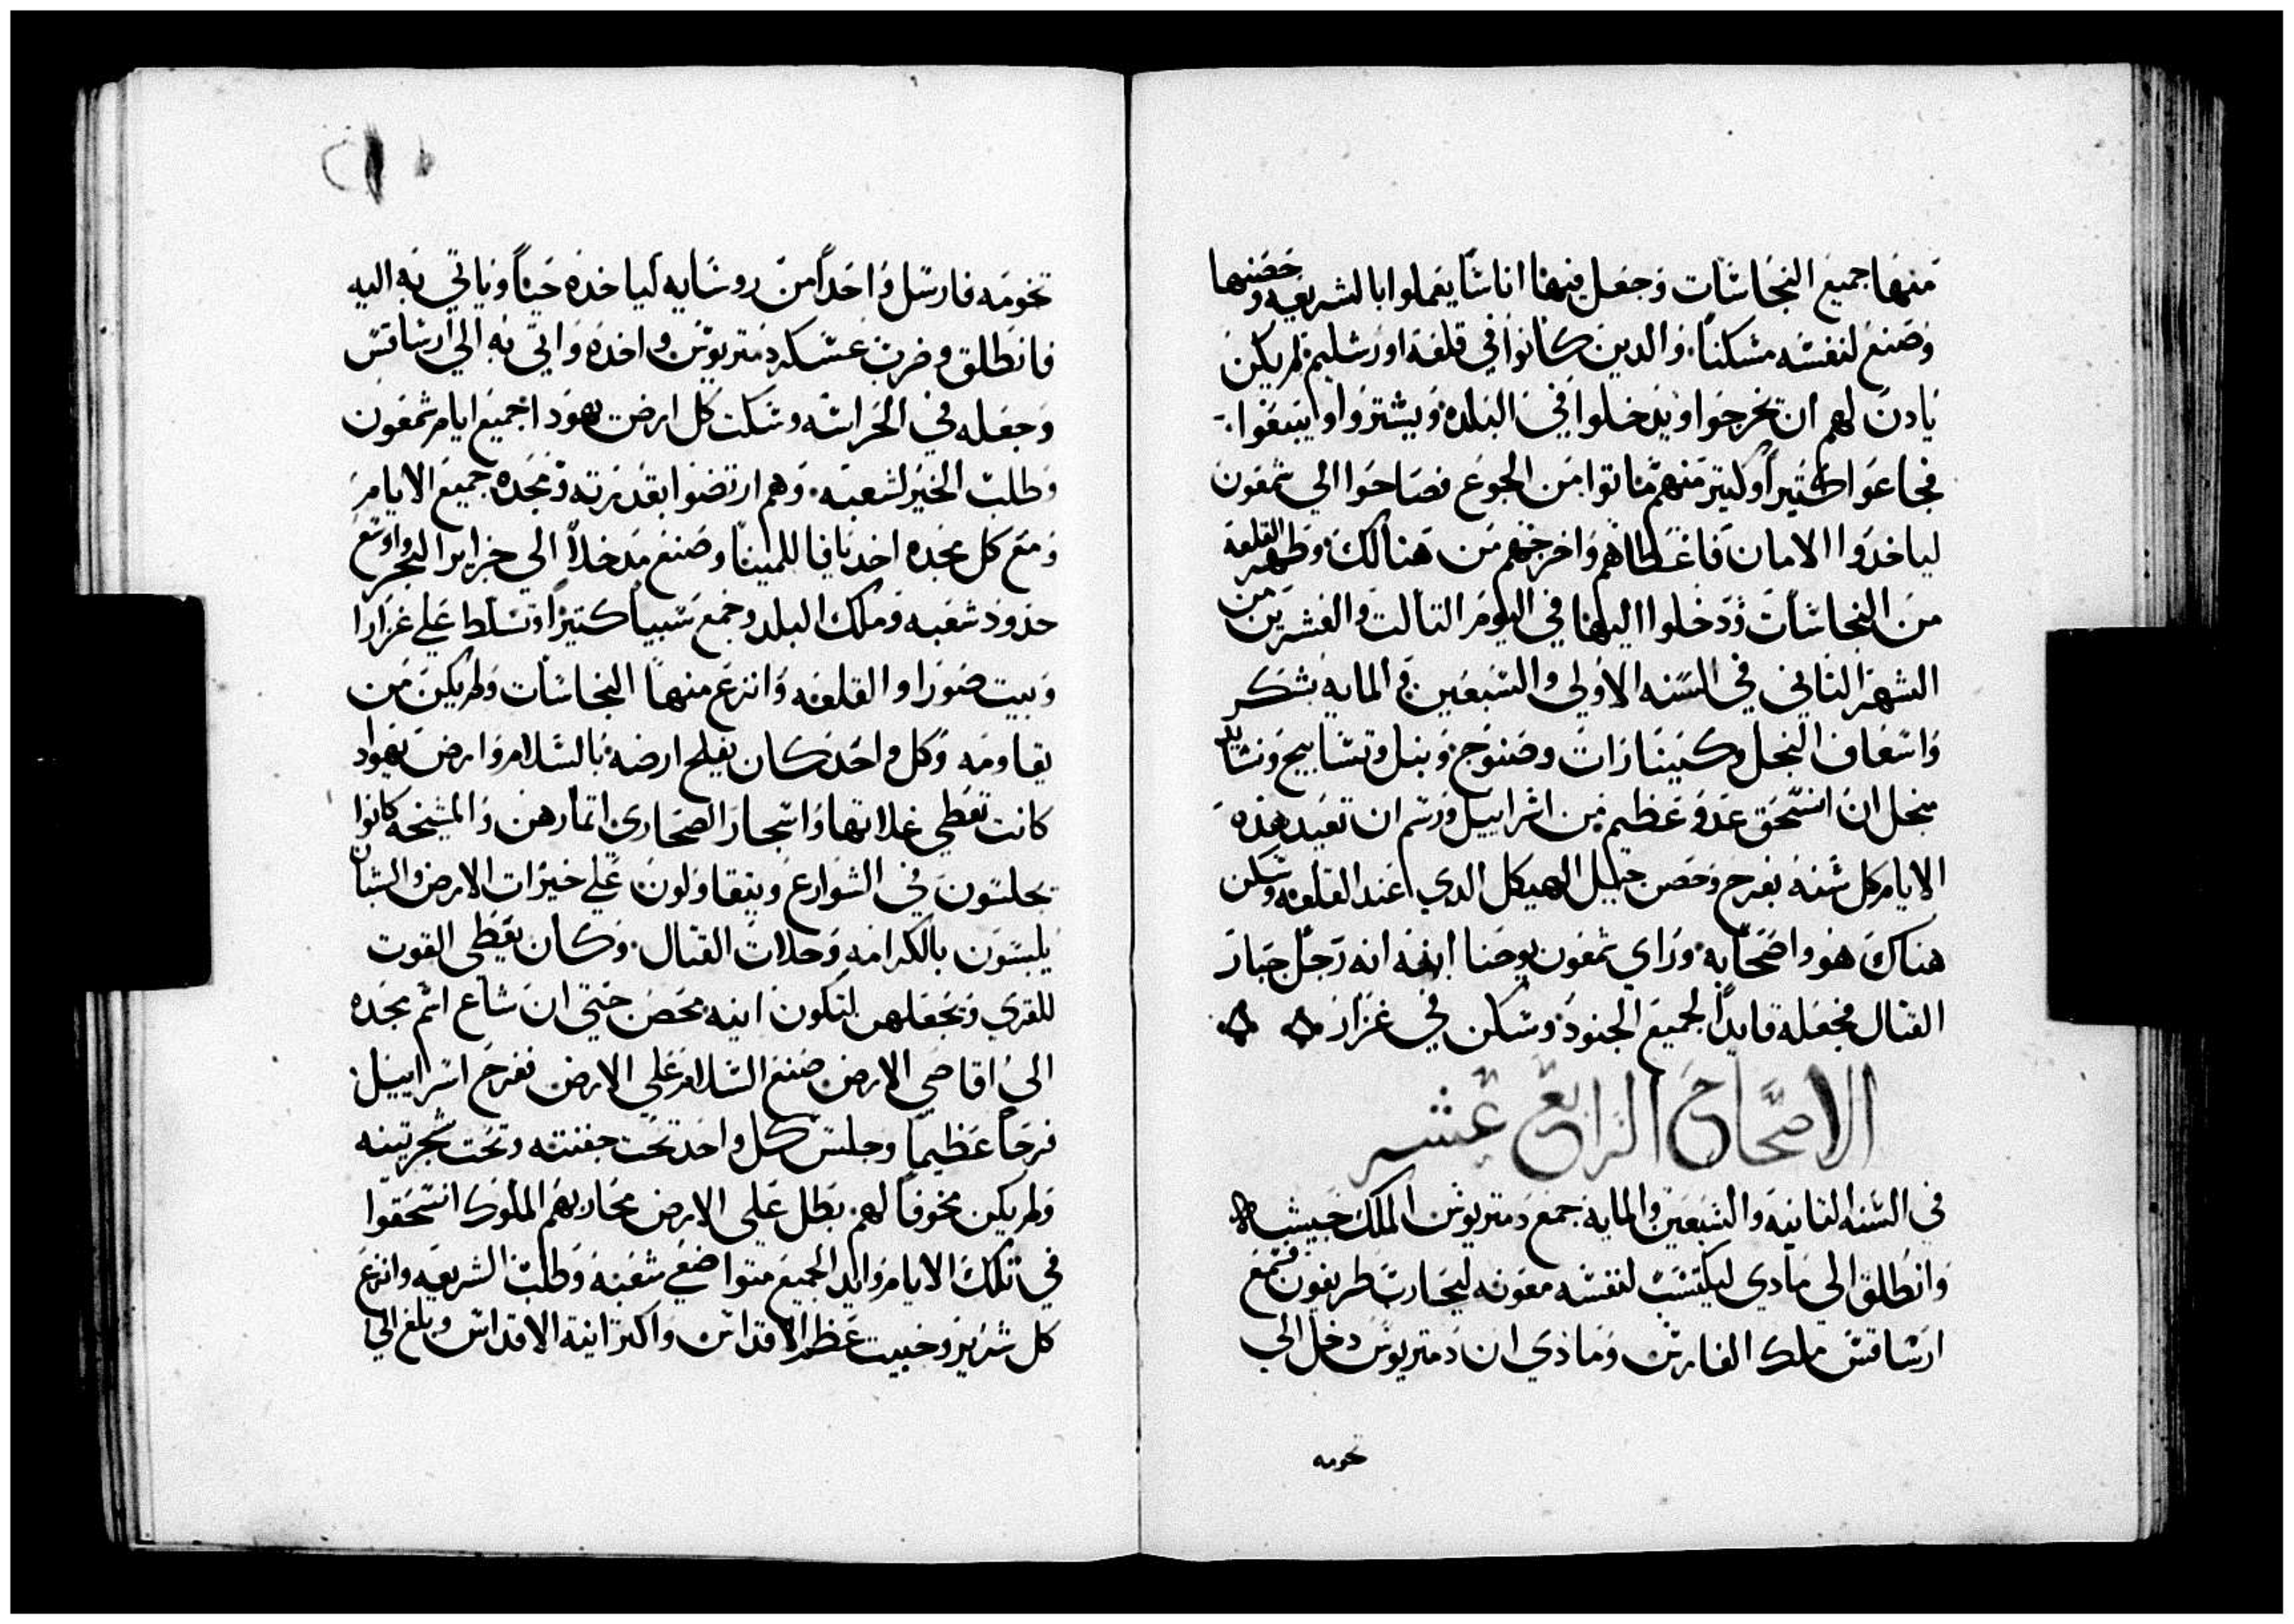 منها جميع النجاسات وجعل فيها اناسًا يعملوا بالشريعه وحصنها
وصنع لنفسه مسكنًا. والدين كانوا في قلعة اورشليم لم يكن
يادن لهم ان تخرجوا ويدخلوا في البلده ويشتروا او يبيعوا.
فجاعوا كتيراً وكتير منهم ماتوا من الجوع فصاحوا الي شمعون
لياخدوا الامان فاعطاهم واخرجهم من هنالك وطهر القلعه
من النجاسات ودخلوا اليها في اليوم التالت والعشرين من
الشهر الثاني في السنه الاولي والسبعين والمايه بشكر
واسعاف النخل وكينارات وصنوج ونبل وتسابيح ونشايد
بجل ان انسحق عدو عظيم من اسراييل ورسم ان تعيد هذه
الايام كل سنه بفرح وحصن جبل الهيكل الدي عند القلعه وسكن
هناك هو واصحابه. وراي شمعون يوحنا ابنه انه رجل جبار
القتال فجعله قايداً لجميع الجنود وسكن في غزار
الاصحاح الرابع عشر
في السنه التانيه والسبعين والمايه جمع دمتريوس الملك جيشه
وانطلق الي مادي ليكتسب لنفسه معونه ليحارب طريفون فسمع
ارساقس ملك الفارس ومادي ان دمتريوس دخل الي
تخومه
تخومه فارسل واحداً من روسايه لياخده حياً وياتي به اليه
فانطلق وضرب عسكر دمتريوس واخده واتي به الي ارساقس
وجعله في الحراسه وسكنت كل ارض يهودا جميع ايام شمعون
وطلب الخير لشعبه. وهم ارتضوا بقدرته ومجده جميع الايام
ومع كل مجده اخد يافا للمينا وصنع مدخلاً الي جزاير البحر واوسع
حدود شعبه وملك البلد وجمع سبياً كتيراً وتسلط علي غزارا
وبيت صورا والقلعه وانزع منها النجاسات ولم يكن من
يقاومه وكل واحد كان يفلح ارضه بالسلام وارض يهودا
كانت تعطي غلاتها واشجار الصحاري اتمارهن والمشيخه كانوا
يجلسون في الشوارع ويتقاولون علي خيرات الارض والشبان
يلبسون بالكرامه وحلات القتال. وكان يعطي القوت
للقري ويجعلهن لتكون انيه محصن حتي ان شاع اسم مجده
الي اقاصي الارض صنع السلام علي الارض ففرح اسراييل
فرحاً عظيماً وجلس كل واحد تحت جفنته وتحت شجرتينه
ولم يكن مخوفاً لهم بطل علي الارض محاربهم الملوك انسحقوا
في تلك الايام وايد الجميع متواضعي شعبه وطلب الشريعه وانزع
كل شرير وخبيت عظم الاقداس واكثر انية الاقداس وبلغ الي